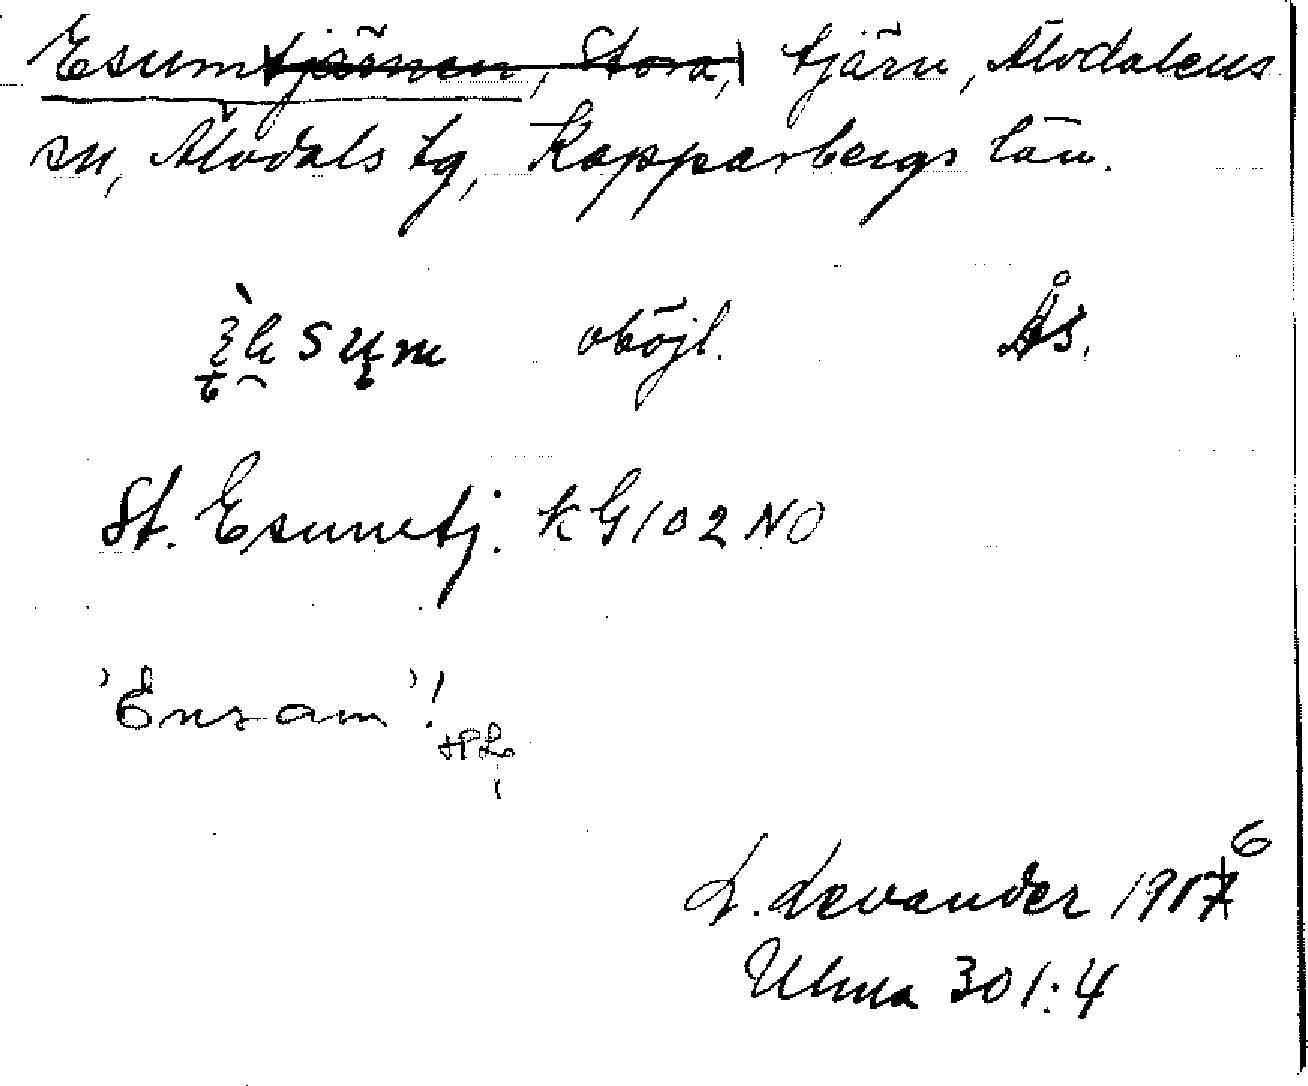 Esumtjärnen, Stora, tjärn, Älvdalens
sn, Älvdals tg, Kopparbergs län.
oböjl. Ås.
St. Esumtj. kG 102 NO
'Ensam'!
L. Levander 1906
Ulma 301:4